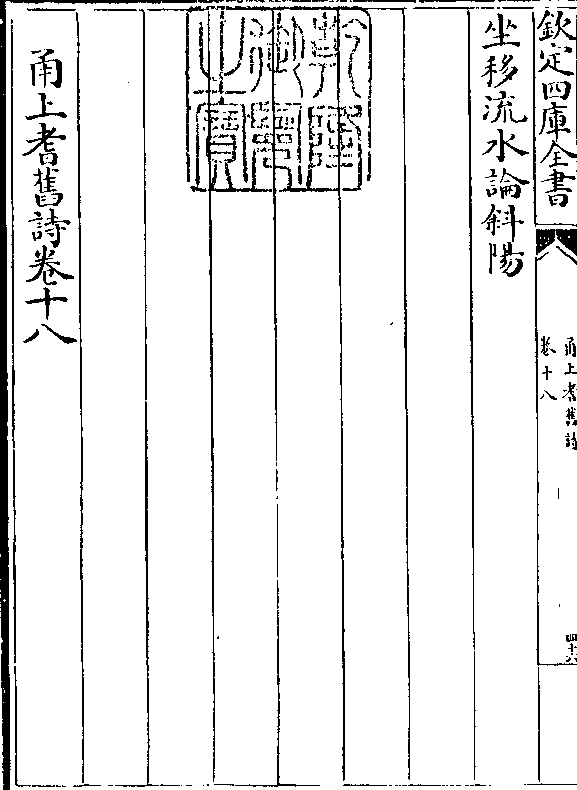 欽定四庫全書
甬上耆舊詩
卷十八
四十六
坐移流水論斜陽
乾隆御覽之寶
甬上耆舊詩卷十八